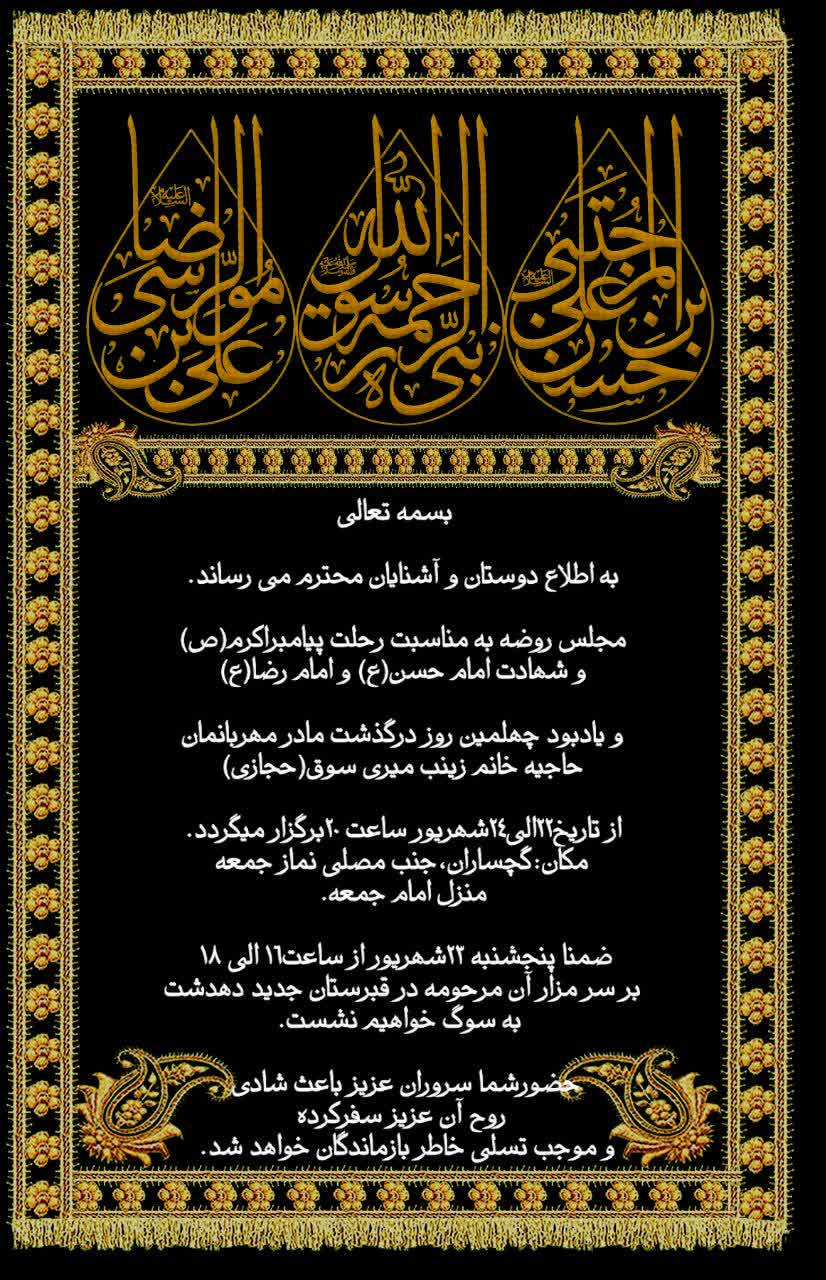 حسن بن علی المجتبی
علیه السلام
نبی الرحمه رسول الله
علی بن موسی الرضا
علیه السلام
بسمه تعالی
به اطلاع دوستان و آشنایان محترم می رساند.
مجلس روضه به مناسبت رحلت پیامبراکرم(ص)
و شهادت امام حسن(ع) و امام رضا(ع)
و یادبود چهلمین روز درگذشت مادر مهربانمان
حاجیه خانم زینب میری سوق(حجازی)
از تاریخ۲۲الی۲٤شهریور ساعت ۲۰برگزار میگردد.
مکان:گچساران،جنب مصلی نماز جمعه
منزل امام جمعه.
ضمنا پنجشنبه ۲۳شهریور از ساعت۱٦ الی ۱۸
بر سر مزار آن مرحومه در قبرستان جدید دهدشت
به سوگ خواهیم نشست.
حضورشما سروران عزیز باعث شادی
روح آن عزیز سفرکرده
و موجب تسلی خاطر بازماندگان خواهد شد.